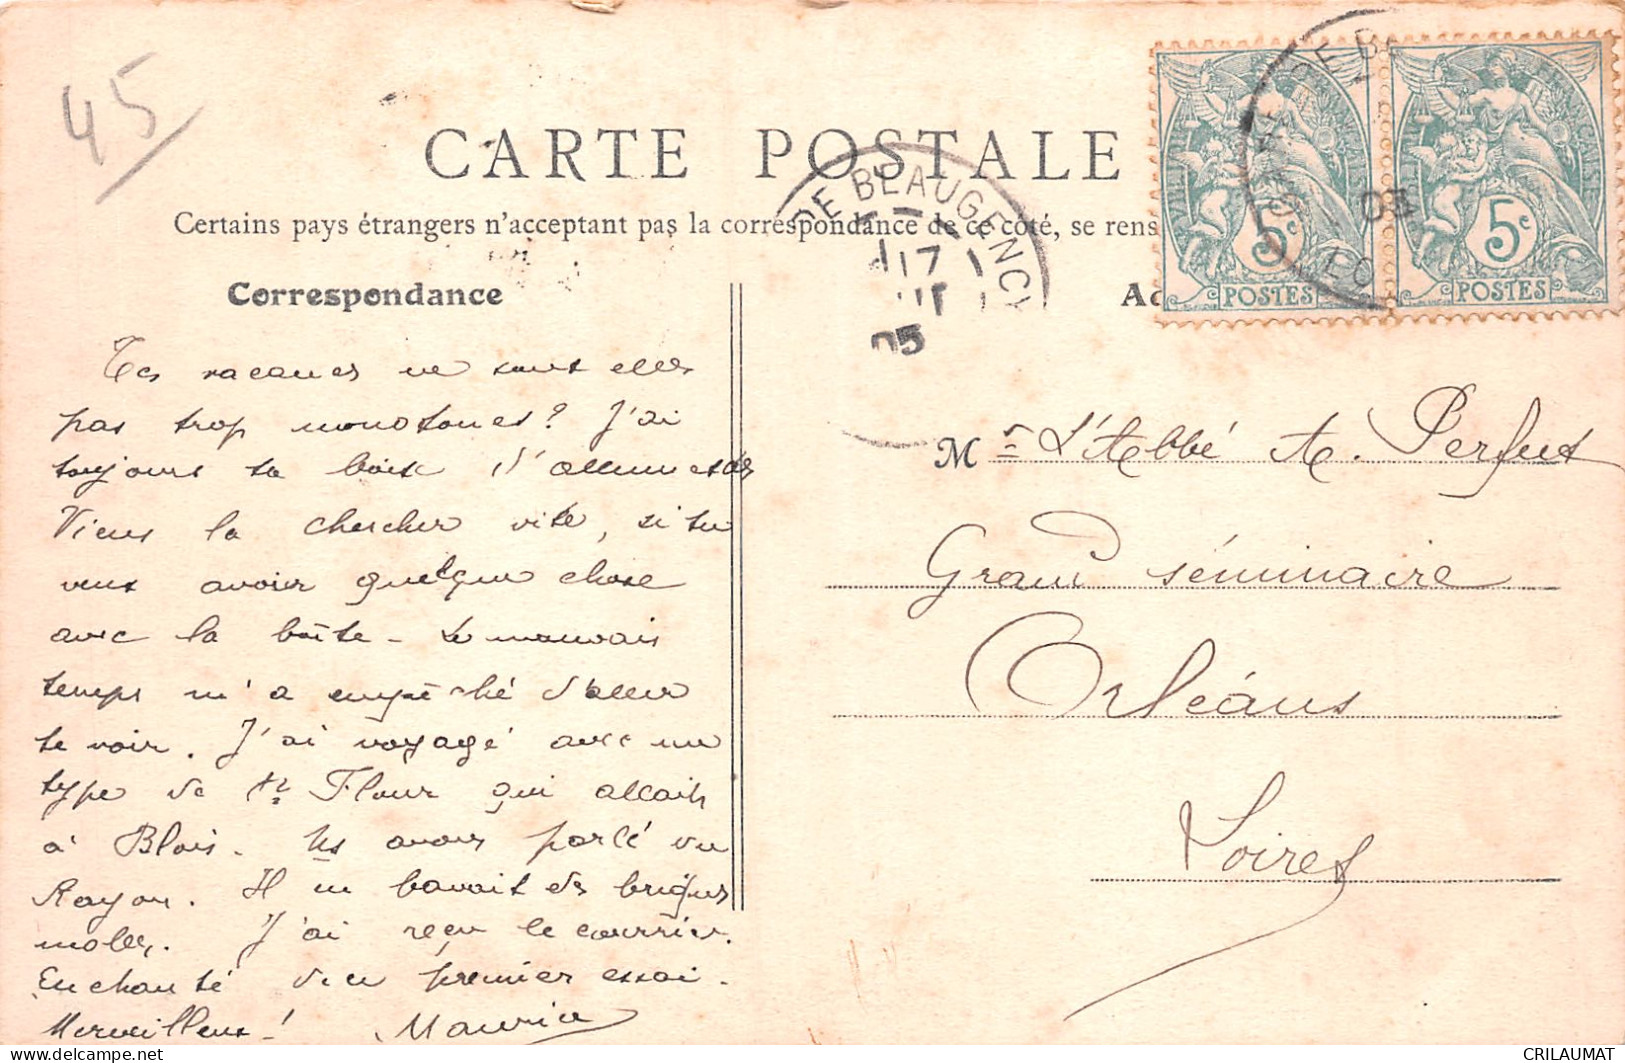 45
CARTE POSTALE
Certains pays étrangers n'acceptant pas la correspondance de ce côté, se rens
Correspondance
Tes vacances ne sont elles
pas trop monotones? J'ai
toujours ta boite d'allumettes
Viens la chercher vite, si tu
veux avoir quelque chose
avec la boîte - Le mauvais
temps m'a empêché d'aller
te voir. J'ai voyagé avec un
type de St Flour qui allait
à Blois. Ns avons parlé du
Rayon. Il en bavait des briques
molles. J'ai reçu le courrier.
Enchanté du premier essai.
Merveilleux! Maurice
DE BEAUGENCY
17
05
RÉPUBLIQUE FRANÇAISE
5c
POSTES
5c
POSTES
Mr L'Abbé A. Perfus
Grand séminaire
Orléans
Loiret
CRILAUMAT